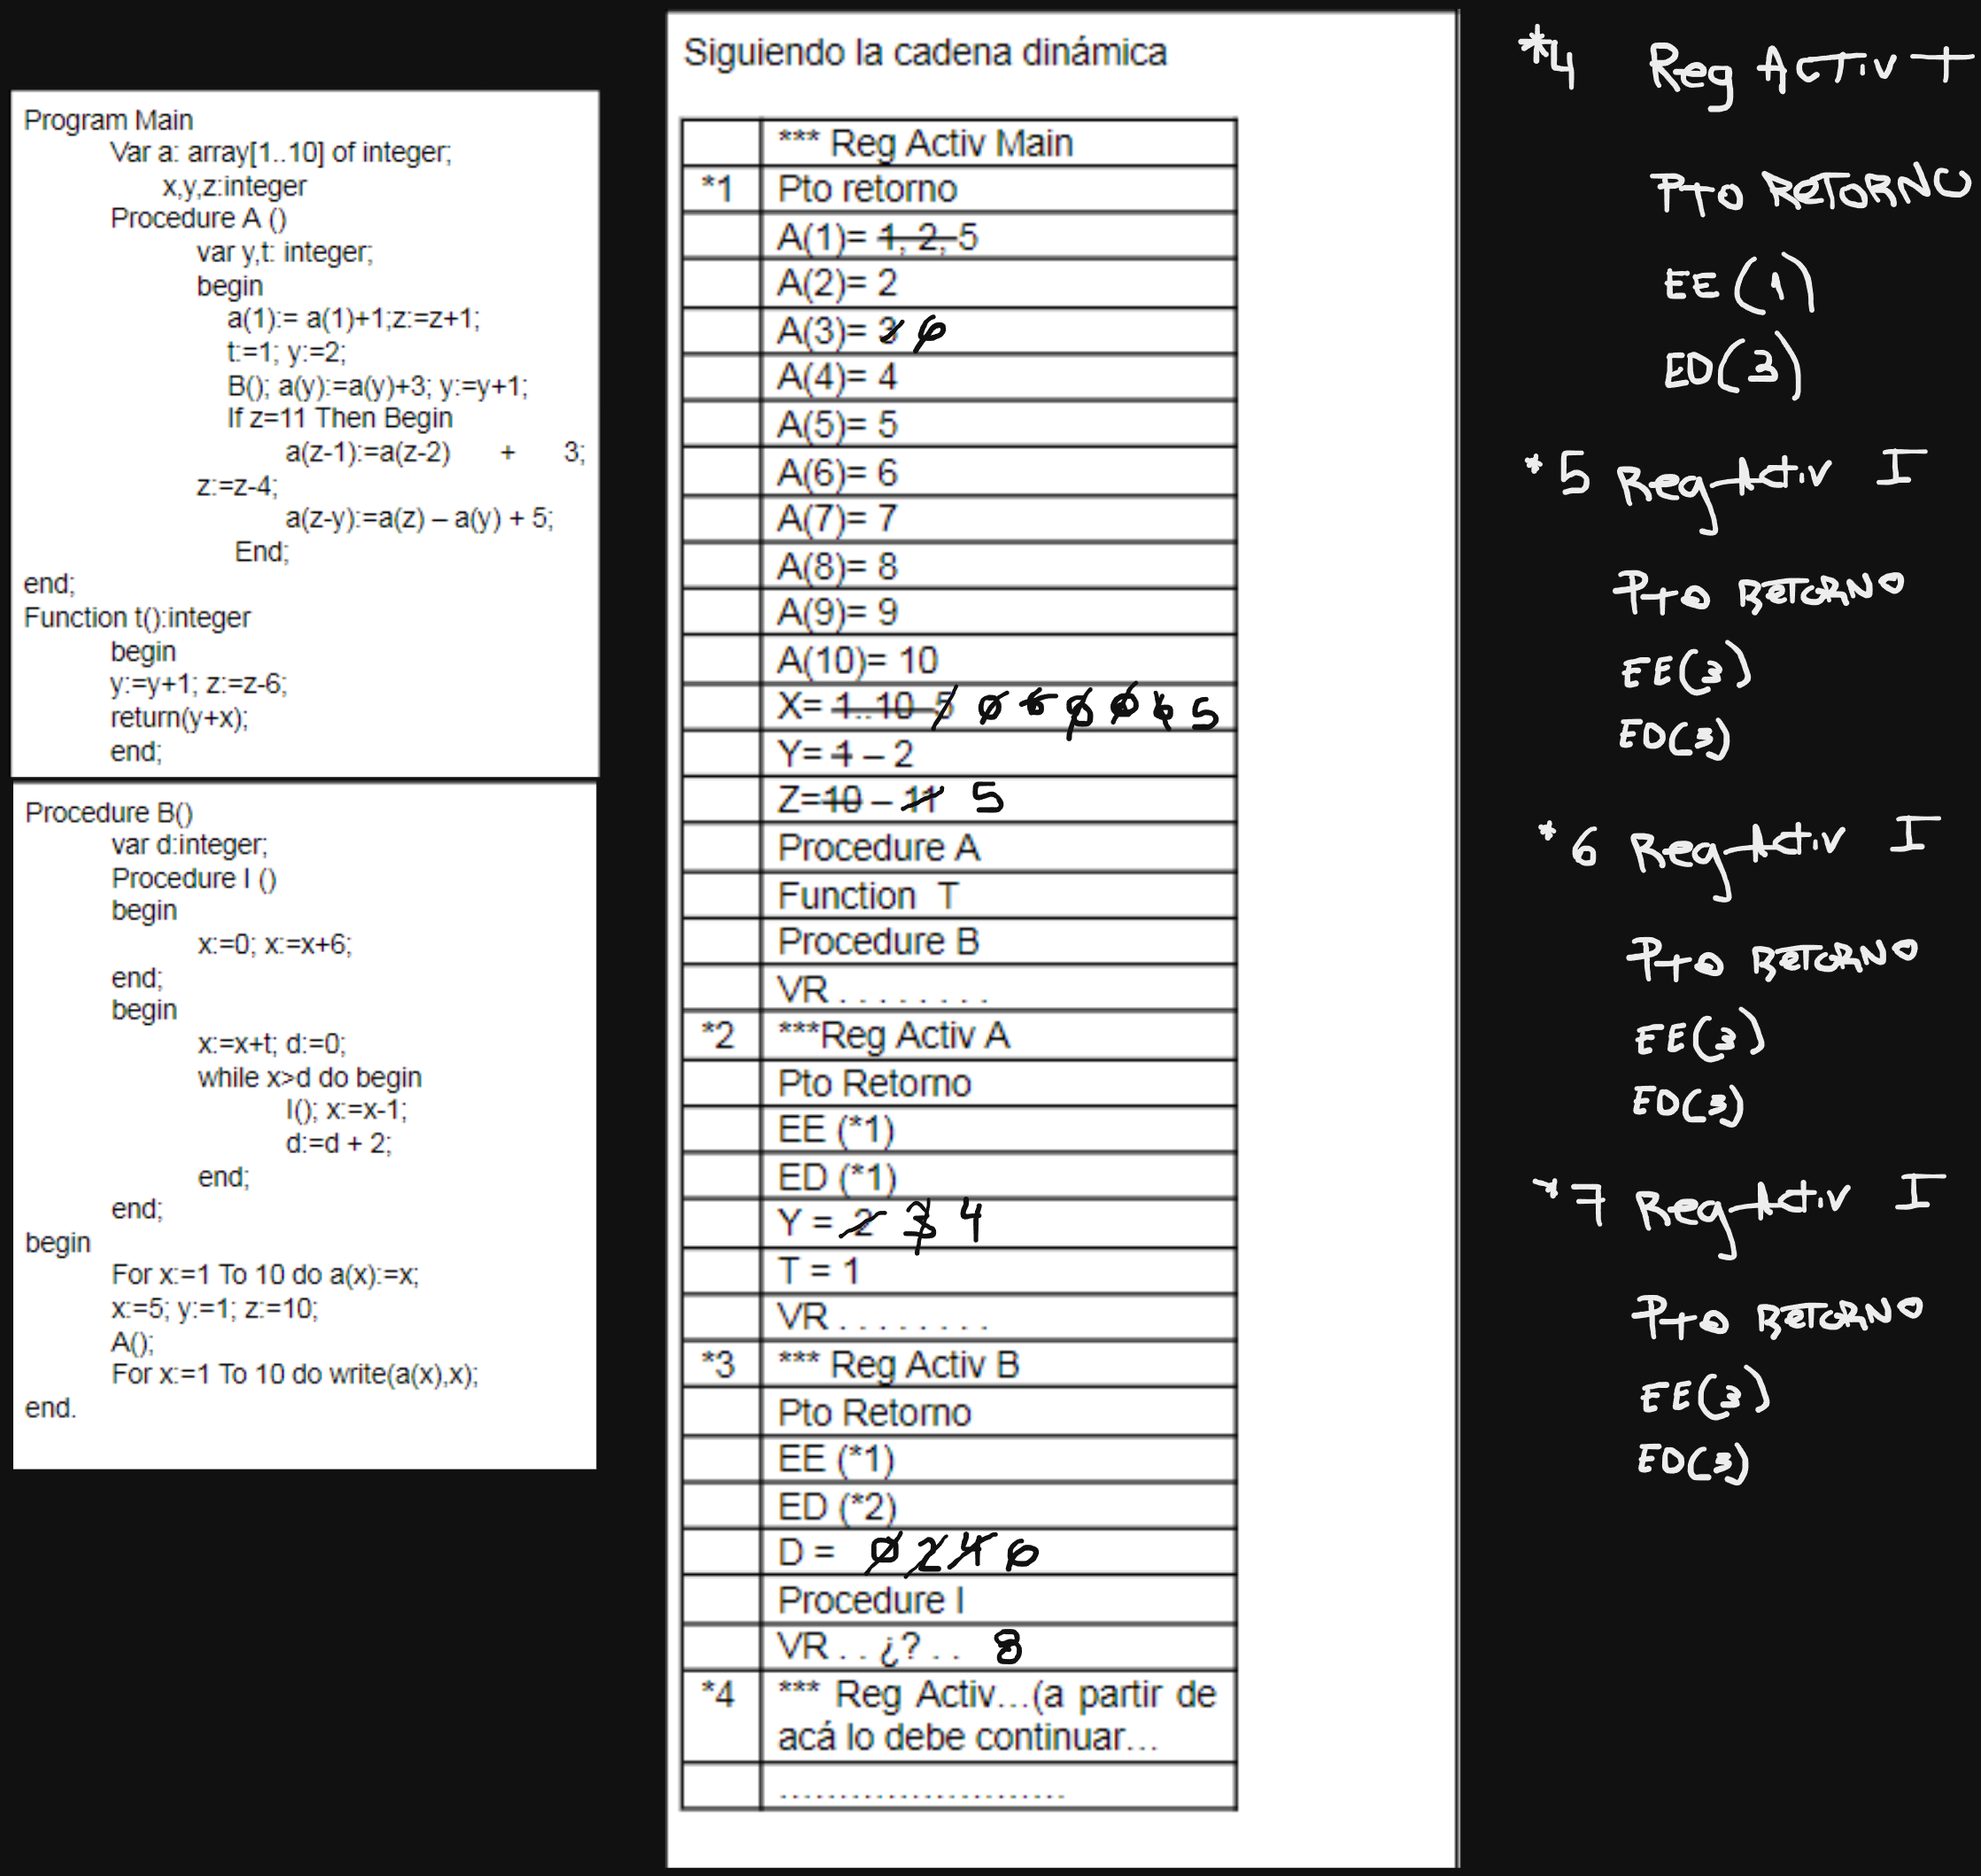 Program Main
Var a: array[1..10] of integer;
x,y,z:integer
Procedure A ()
var y,t: integer;
begin
a(1):= a(1)+1;z:=z+1;
t:=1; y:=2;
B(); a(y):=a(y)+3; y:=y+1;
If z=11 Then Begin
a(z-1):=a(z-2) + 3;
z:=z-4;
a(z-y):=a(z) – a(y) + 5;
End;
end;
Function t():integer
begin
y:=y+1; z:=z-6;
return(y+x);
end;
Procedure B()
var d:integer;
Procedure I ()
begin
x:=0; x:=x+6;
end;
begin
x:=x+t; d:=0;
while x>d do begin
I(); x:=x-1;
d:=d + 2;
end;
end;
begin
For x:=1 To 10 do a(x):=x;
x:=5; y:=1; z:=10;
A();
For x:=1 To 10 do write(a(x),x);
end.
Siguiendo la cadena dinámica
*** Reg Activ Main
*1 Pto retorno
A(1)= 1, 2, 5
A(2)= 2
A(3)= 3 6
A(4)= 4
A(5)= 5
A(6)= 6
A(7)= 7
A(8)= 8
A(9)= 9
A(10)= 10
X= 1..10 5 0 6 0 0 6 5
Y= 1 – 2
Z=10 – 11 5
Procedure A
Function T
Procedure B
VR . . . . . . . .
*2 ***Reg Activ A
Pto Retorno
EE (*1)
ED (*1)
Y = 2 3 4
T = 1
VR . . . . . . . .
*3 *** Reg Activ B
Pto Retorno
EE (*1)
ED (*2)
D = 0 2 4 6
Procedure I
VR . . ¿? . . 8
*4 *** Reg Activ…(a partir de
acá lo debe continuar…
........................
*4 Reg Activ T
PTO RETORNO
EE (1)
ED(3)
*5 Reg Activ I
Pto RETORNO
EE(3)
ED(3)
*6 Reg Activ I
Pto RETORNO
EE(3)
ED(3)
*7 Reg Activ I
Pto RETORNO
EE(3)
ED(3)